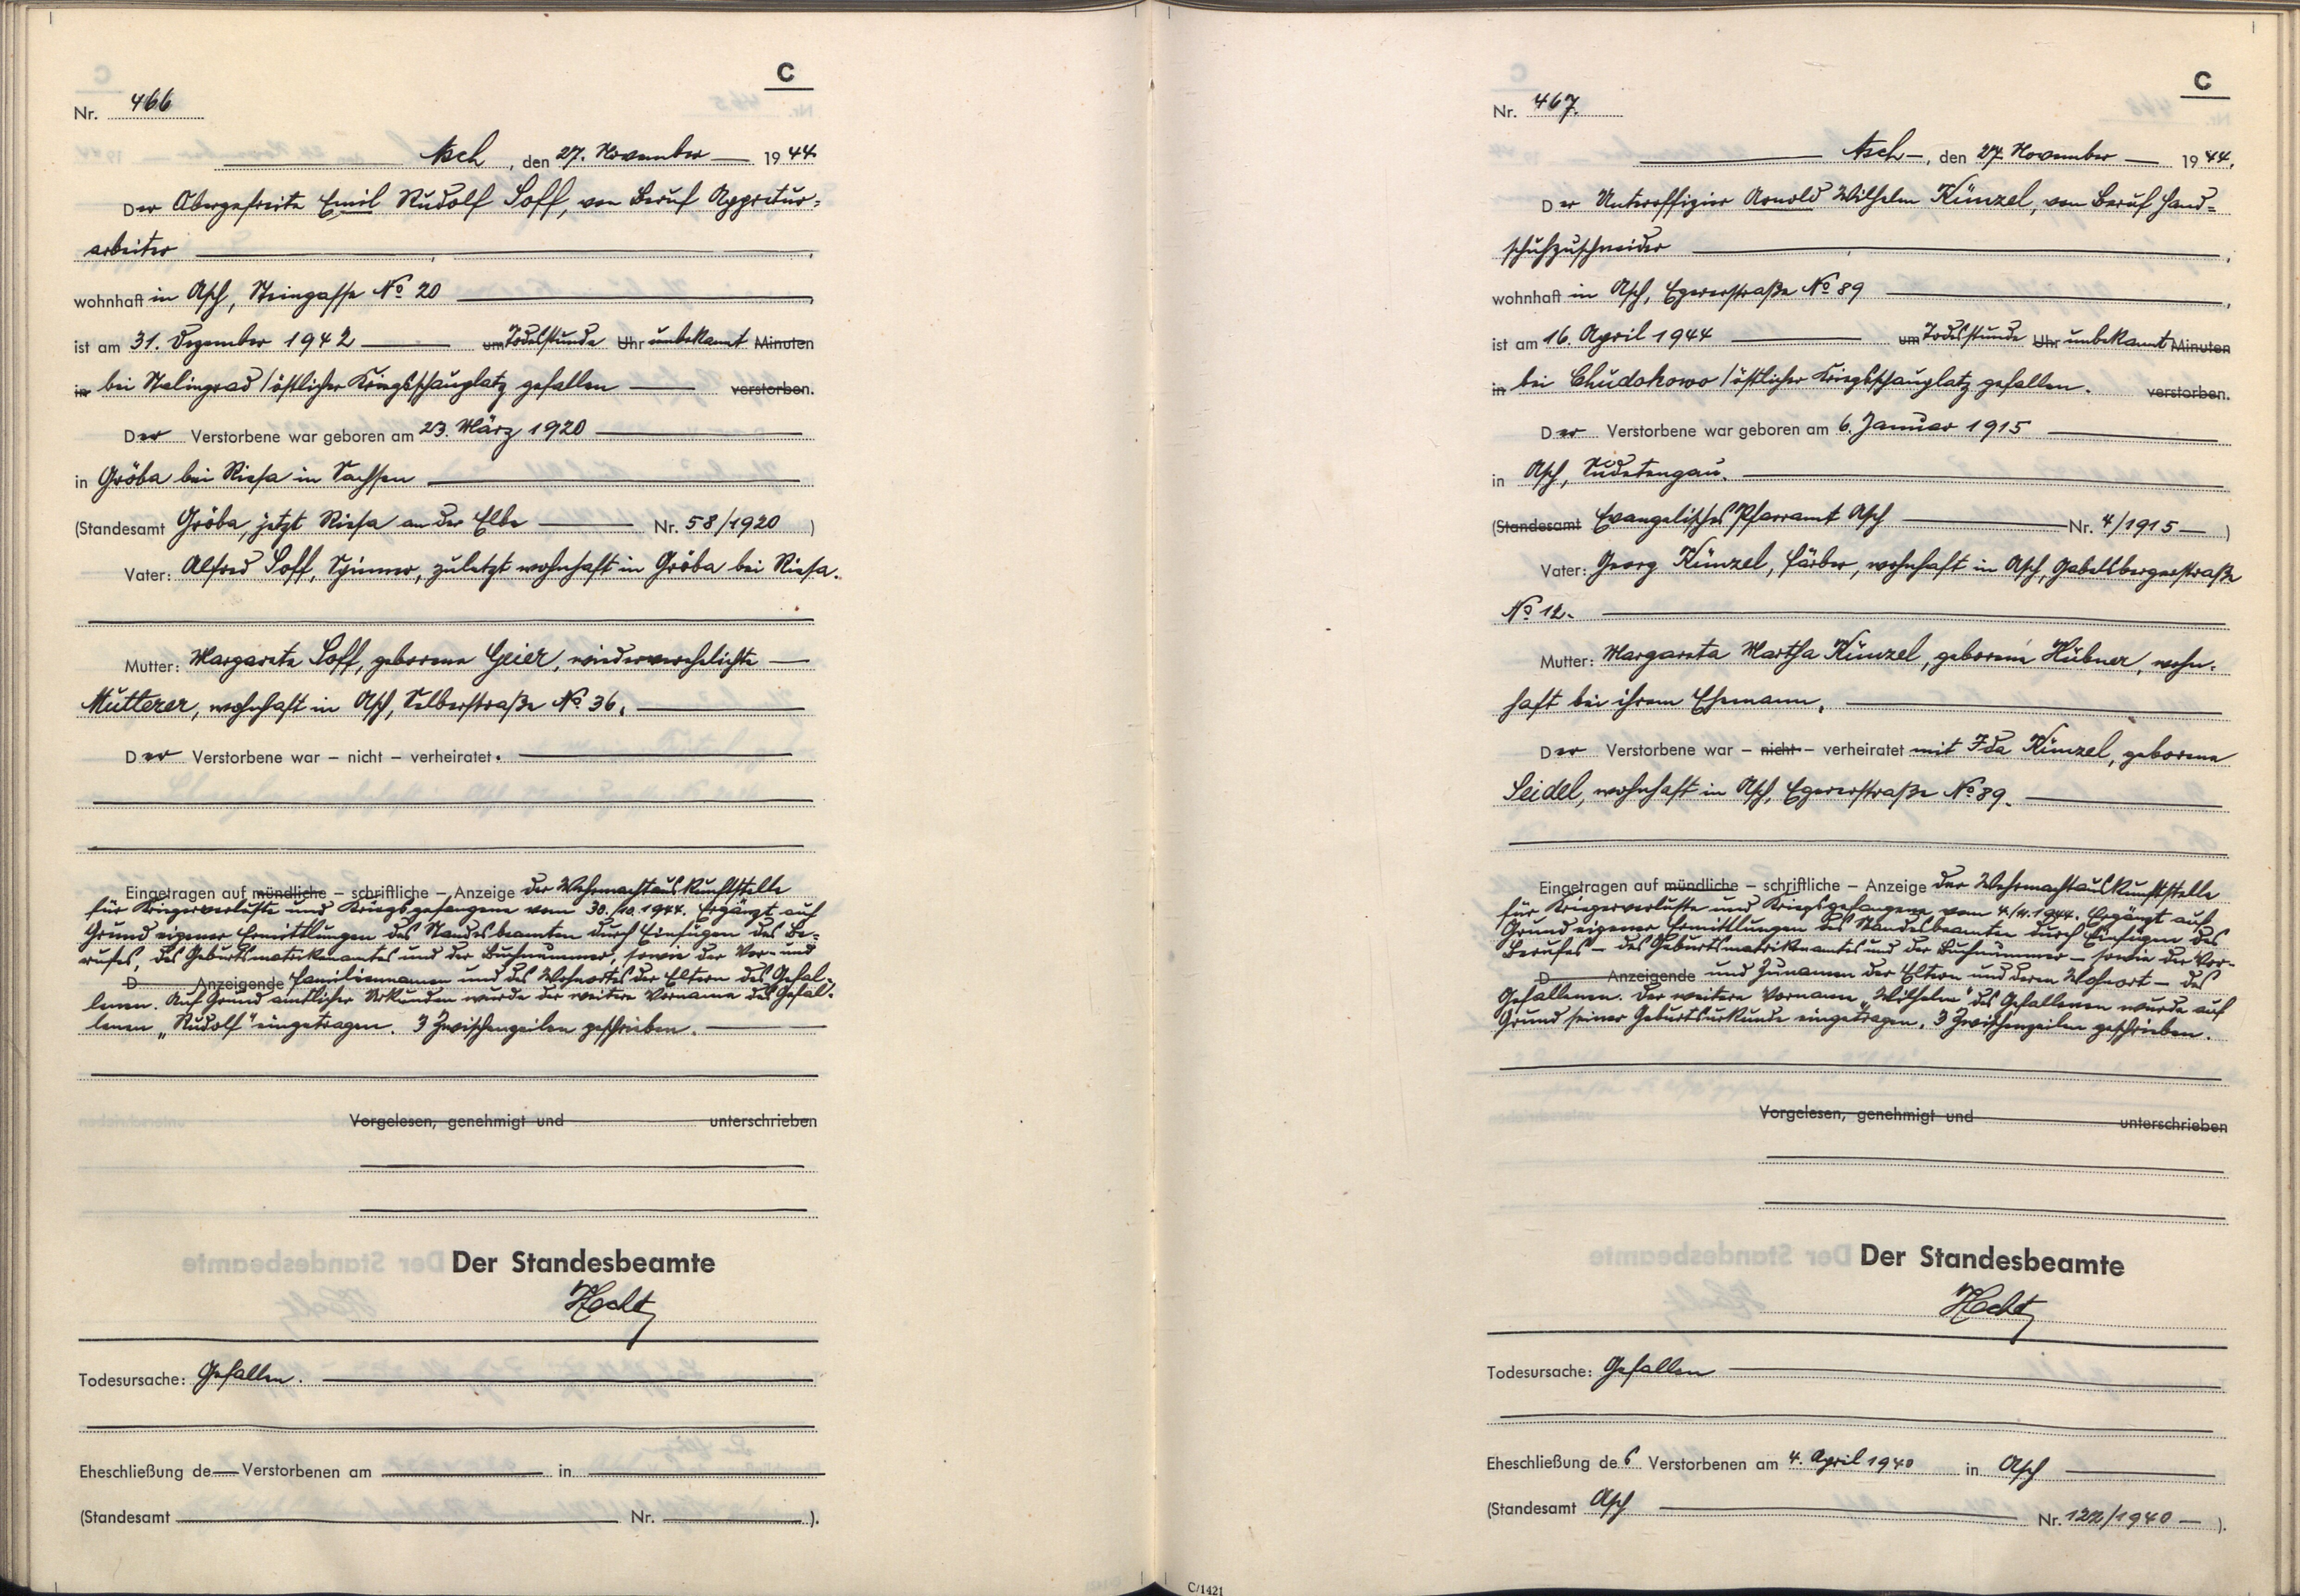 C
Nr. 466
Asch, den 27. November 1944
Der Obergefreite Emil Rudolf Loff, von Beruf Appretur=
arbeiter
wohnhaft in Asch, Steingasse No 20
ist am 31. Dezember 1942 um Todesstunde Uhr unbekannt Minuten
in bei Stalingrad / östlicher Kriegsschauplatz gefallen verstorben.
Der Verstorbene war geboren am 23. März 1920
in Gröba bei Riesa in Sachsen
(Standesamt Gröba, jetzt Riesa an der Elbe Nr. 58/1920 )
Vater: Alfred Loff, Spinner, zuletzt wohnhaft in Gröba bei Riesa.
Mutter: Margarete Loff, geborene Geier, wiederverehelichte
Mutterer, wohnhaft in Asch, Selberstraße No. 36.
Der Verstorbene war – nicht – verheiratet.
Eingetragen auf mündliche – schriftliche – Anzeige der Wehrmachtauskunftstelle
für Kriegerverluste und Kriegsgefangene vom 30./10.1944. Ergänzt auf
Grund eigener Ermittlungen des Standesbeamten durch Einfügen des Be-
rufes, des Geburtsmatrikenamtes und der Buchnummer, sowie der Vor- und
D Anzeigende Familiennamen und des Wohnortes der Eltern des Gefal-
lenen. Auf Grund amtlicher Urkunden wurde der weitere Vorname des Gefal-
lenen „Rudolf" eingetragen. 3 Zwischenzeilen geschrieben.
Vorgelesen, genehmigt und unterschrieben
Der Standesbeamte
Hecht
Todesursache: Gefallen.
Eheschließung de Verstorbenen am in
(Standesamt Nr. ).
C
Nr. 467.
Asch, den 27. November 1944.
Der Unteroffizier Arnold Wilhelm Künzel, von Beruf Hand=
schuhzuschneider
wohnhaft in Asch, Egererstraße No 89
ist am 16. April 1944 um Todesstunde Uhr unbekannt Minuten
in bei Chudokowo / östlicher Kriegsschauplatz gefallen. verstorben.
Der Verstorbene war geboren am 6. Januar 1915
in Asch, Sudetengau.
(Standesamt Evangelisches Pfarramt Asch Nr. 4/1915 )
Vater: Georg Künzel, Färber, wohnhaft in Asch, Gabelsbergerstraße
No 12.
Mutter: Margareta Martha Künzel, geborene Hübner, wohn-
haft bei ihrem Ehemann.
Der Verstorbene war – nicht – verheiratet mit Ida Künzel, geborene
Seidel, wohnhaft in Asch, Egererstraße No 89.
Eingetragen auf mündliche – schriftliche – Anzeige der Wehrmachtauskunftstelle
für Kriegerverluste und Kriegsgefangene vom 4./11.1944. Ergänzt auf
Grund eigener Ermittlungen des Standesbeamten durch Einfügen des
Berufes – des Geburtsmatrikenamtes und der Buchnummer – sowie der Vor-
D Anzeigende und Zunamen der Eltern und deren Wohnort – des
Gefallenen. Der weitere Vorname „Wilhelm" des Gefallenen wurde auf
Grund seiner Geburtsurkunde eingetragen. 3 Zwischenzeilen geschrieben.
Vorgelesen, genehmigt und unterschrieben
Der Standesbeamte
Hecht
Todesursache: Gefallen
Eheschließung des Verstorbenen am 4. April 1940 in Asch
(Standesamt Asch Nr. 122/1940 ).
C/1421